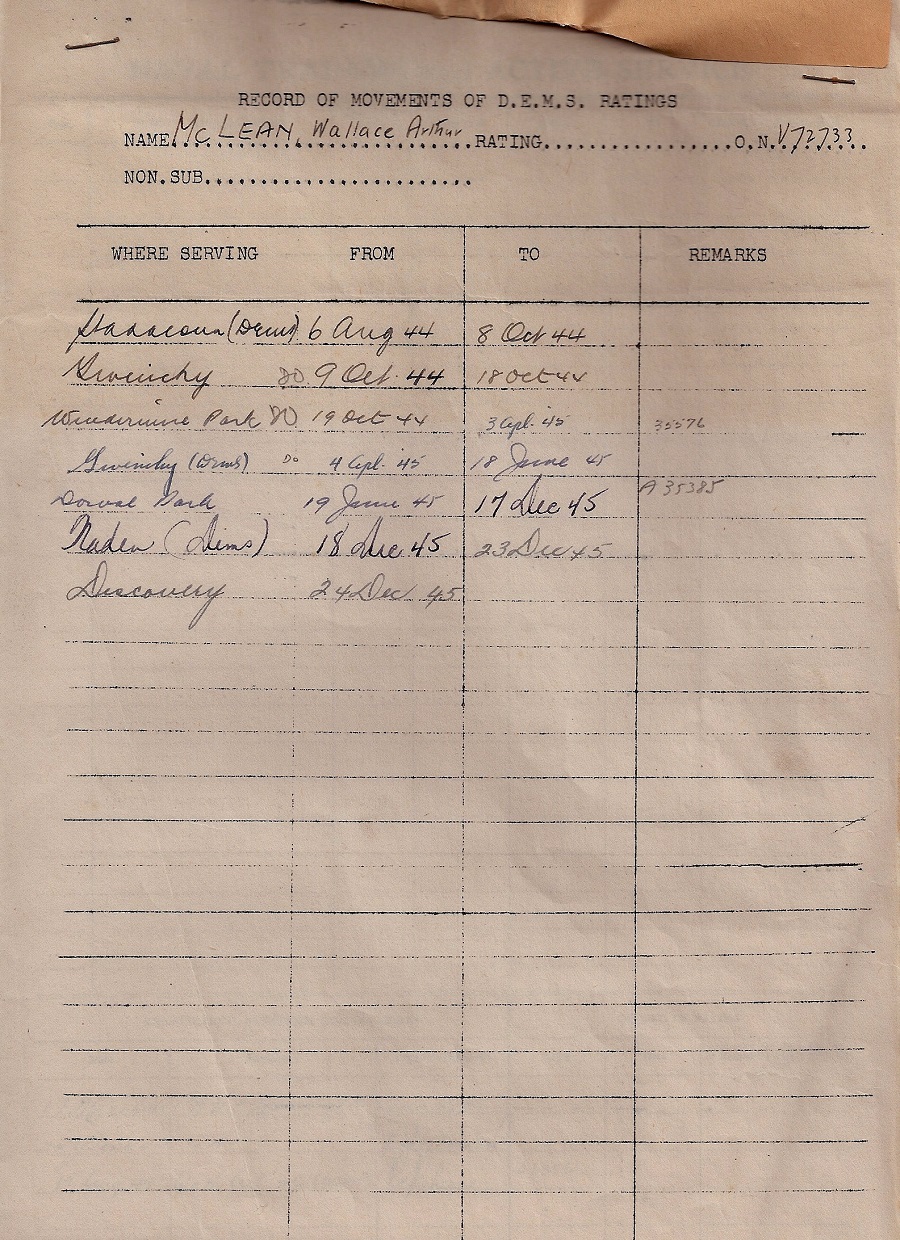 RECORD OF MOVEMENTS OF D.E.M.S. RATINGS
NAME McLEAN, Wallace Arthur RATING.................O.N. V72733
NON.SUB........................
WHERE SERVING FROM TO REMARKS
(Dems) 6 Aug 44 8 Oct 44
Givenchy DO 9 Oct. 44 18 Oct 44
Windermere Park DO 19 Oct 44 3 Apl. 45 35576
Givenchy (Dems) Do 4 Apl. 45 18 June 45
Dorval Park 19 June 45 17 Dec 45 A 35385
Naden (Dems) 18 Dec 45 23 Dec 45
Discovery 24 Dec 45